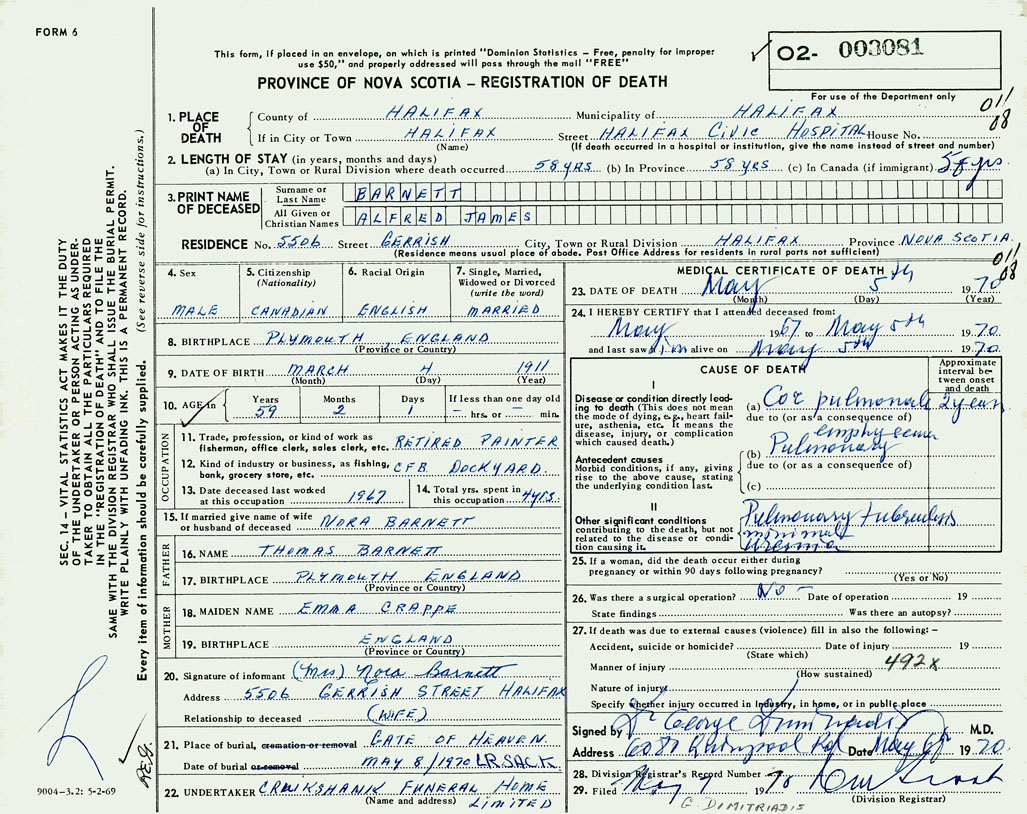 FORM 6
This form, if placed in an envelope, on which is printed "Dominion Statistics – Free, penalty for improper
use $50," and properly addressed will pass through the mail "FREE"
02- 003081
PROVINCE OF NOVA SCOTIA – REGISTRATION OF DEATH
For use of the Department only
011
08
1. PLACE OF DEATH
County of HALIFAX Municipality of HALIFAX
If in City or Town HALIFAX Street HALIFAX CIVIC HOSPITAL House No.
(Name) (If death occurred in a hospital or institution, give the name instead of street and number)
2. LENGTH OF STAY (in years, months and days)
(a) In City, Town or Rural Division where death occurred 58 YRS (b) In Province 58 YRS (c) In Canada (if immigrant) 58 yrs.
3. PRINT NAME OF DECEASED
Surname or Last Name BARNETT
All Given or Christian Names ALFRED JAMES
RESIDENCE No. 5506 Street GERRISH City, Town or Rural Division HALIFAX Province NOVA SCOTIA.
(Residence means usual place of abode. Post Office Address for residents in rural parts not sufficient)
011
08
4. Sex
MALE
5. Citizenship
(Nationality)
CANADIAN
6. Racial Origin
ENGLISH
7. Single, Married,
Widowed or Divorced
(write the word)
MARRIED
8. BIRTHPLACE PLYMOUTH, ENGLAND
(Province or Country)
9. DATE OF BIRTH MARCH 4 1911
(Month) (Day) (Year)
10. AGE in
Years Months Days If less than one day old
59 2 1 – hrs. or – min.
OCCUPATION
11. Trade, profession, or kind of work as
fisherman, office clerk, sales clerk, etc. RETIRED PAINTER
12. Kind of industry or business, as fishing,
bank, grocery store, etc. CFB DOCKYARD.
13. Date deceased last worked
at this occupation 1967
14. Total yrs. spent in
this occupation 4 yrs.
15. If married give name of wife
or husband of deceased NORA BARNETT
FATHER
16. NAME THOMAS BARNETT
17. BIRTHPLACE PLYMOUTH ENGLAND
(Province or Country)
MOTHER
18. MAIDEN NAME EMMA CRAPPE
19. BIRTHPLACE ENGLAND
(Province or Country)
20. Signature of informant (Mrs) Nora Barnett
Address 5506 GERRISH STREET HALIFAX
Relationship to deceased (WIFE)
21. Place of burial, cremation or removal GATE OF HEAVEN.
Date of burial or removal MAY 8/1970 LR. SACK.
22. UNDERTAKER CRUIKSHANK FUNERAL HOME
(Name and address) LIMITED
MEDICAL CERTIFICATE OF DEATH
23. DATE OF DEATH May 5th 1970
(Month) (Day) (Year)
24. I HEREBY CERTIFY that I attended deceased from:
May 1967 to May 5th 1970
and last saw him alive on May 5th 1970
CAUSE OF DEATH
Approximate
interval be-
tween onset
and death
I
Disease or condition directly lead-
ing to death (This does not mean
the mode of dying, e.g., heart fail-
ure, asthenia, etc. It means the
disease, injury, or complication
which caused death.)
(a) Cor pulmonale 2 years
due to (or as a consequence of)
emphysema
Antecedent causes
Morbid conditions, if any, giving
rise to the above cause, stating
the underlying condition last.
(b) Pulmonary
due to (or as a consequence of)
(c)
II
Other significant conditions
contributing to the death, but not
related to the disease or condi-
tion causing it.
Pulmonary tuberculosis
minimal
Uremia
25. If a woman, did the death occur either during
pregnancy or within 90 days following pregnancy?
(Yes or No)
26. Was there a surgical operation? No – Date of operation 19
State findings Was there an autopsy?
27. If death was due to external causes (violence) fill in also the following: –
Accident, suicide or homicide? Date of injury 19
(State which)
Manner of injury 492x
(How sustained)
Nature of injury
Specify whether injury occurred in industry, in home, or in public place
Signed by Dr George Dimitriadis M.D.
Address Quinpool Rd Date May 1970
28. Division Registrar's Record Number
29. Filed May 7 1970
(Division Registrar)
G. DIMITRIADIS
SEC. 14 – VITAL STATISTICS ACT MAKES IT THE DUTY
OF THE UNDERTAKER OR PERSON ACTING AS UNDER-
TAKER TO OBTAIN ALL THE PARTICULARS REQUIRED
IN THE "REGISTRATION OF DEATH" AND TO FILE THE
SAME WITH THE DIVISION REGISTRAR WHO SHALL ISSUE THE BURIAL PERMIT.
WRITE PLAINLY WITH UNFADING INK. THIS IS A PERMANENT RECORD.
Every item of information should be carefully supplied. (See reverse side for instructions.)
REG.
9004-3.2: 5-2-69